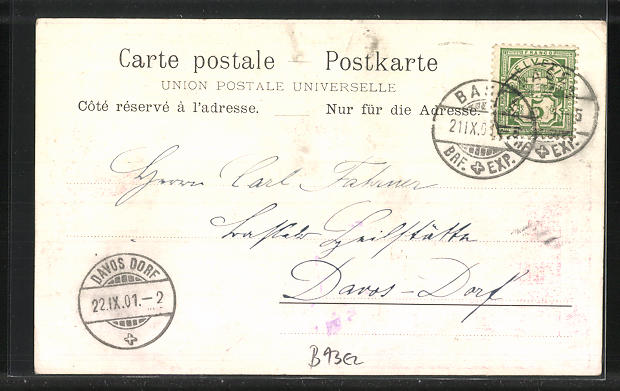 Carte postale — Postkarte
UNION POSTALE UNIVERSELLE
Côté réservé à l'adresse. — Nur für die Adresse.
FRANCO
HELVETIA
5
BAS
21 IX.01
BRF. EXP.
EXP.
Herrn Carl Fahrner
Basler Heilstätte
Davos-Dorf
DAVOS DORF
22.IX.01.–2
B93E2